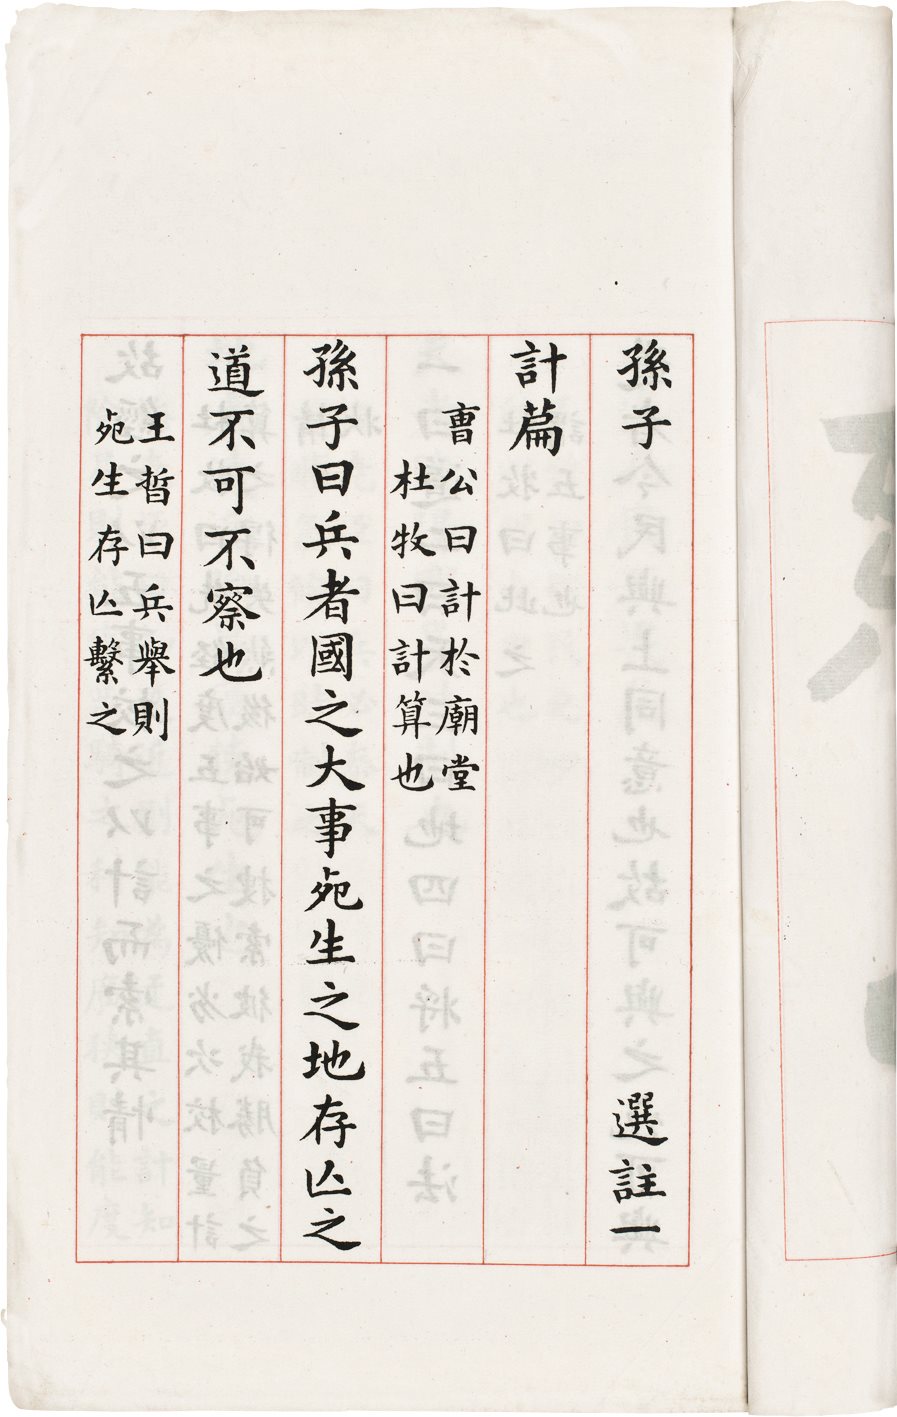 孫子 選註一
計篇
曹公曰計於廟堂
杜牧曰計算也
孫子曰兵者國之大事死生之地存亾之
道不可不察也
王晳曰兵舉則
死生存亾繫之